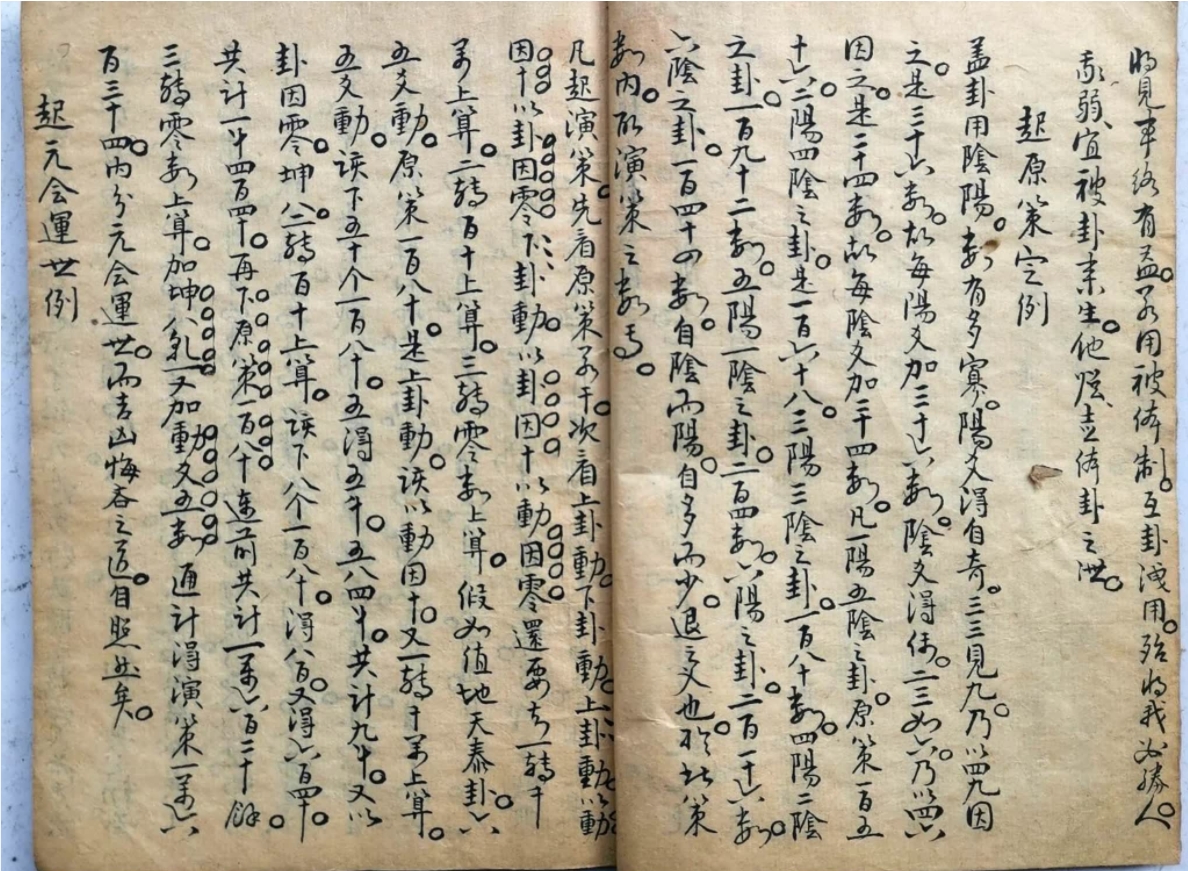 將見事終有益若用被体制互卦洩用殆將我必勝人
我弱宜被卦来生他烖立体卦之洪
起原策定例
盖卦用陰陽数有多寡陽爻得自奇三三見九乃以四九因
之是三十六数故每陽爻加三十六数陰爻得偶二三如六乃以四六
因之是二十四数故每陰爻加二十四数凡一陽五陰之卦原策一百五
十六二陽四陰之卦是一百六十八三陽三陰之卦一百八十数四陽二陰
之卦一百九十二数五陽一陰之卦二百四数六陽之卦二百一十六数
六陰之卦一百四十四数自陰而陽自多而少退之义也於此策
数内取演策之数焉
凡起演策先看原策若干次看上卦動下卦動上卦動以動
因十以卦因零下卦動以卦因十以動因零還要知一轉千
萬上算二轉百十上算三轉零数上算假如值地天泰卦六
五爻動原策一百八十是上卦動該以動因十又一轉十萬上算
五爻動該下五十个一百八十五得五千五八四千共計九千又以
卦因零坤八二轉百十上算該下八个一百八十得八百又得六百四十
共計一千四百四十再下原策一百八十連前共計一萬六百二十餘
三轉零数上算加坤八乾一又加動爻五数通計得演策一萬六
百三十四内分元会運世而吉凶悔吝之道自照然矣
起元会運世例